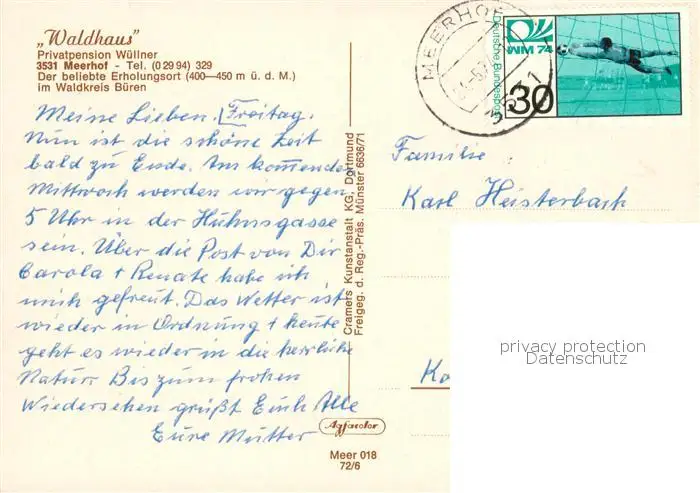 „Waldhaus"
Privatpension Wüllner
3531 Meerhof - Tel. (0 29 94) 329
Der beliebte Erholungsort (400—450 m ü. d. M.)
im Waldkreis Büren
Meine Lieben, Freitag.
Nun ist die schöne Zeit
bald zu Ende. Am kommenden
Mittwoch werden wir gegen
5 Uhr in der Hühnsgasse
sein. Über die Post von Dir
Carola + Renate habe ich
mich gefreut. Das Wetter ist
wieder in Ordnung + heute
geht es wieder in die herrliche
Natur. Bis zum frohen
Wiedersehen grüßt Euch Alle
Eure Mutter
Cramers Kunstanstalt KG, Dortmund
Freigeg. d. Reg.-Präs. Münster 6636/71
Agfacolor
Meer 018
72/6
MEERHOF
3531
Deutsche Bundespost
WM 74
30
Familie
Karl Heisterbach
Ko
privacy protection
Datenschutz